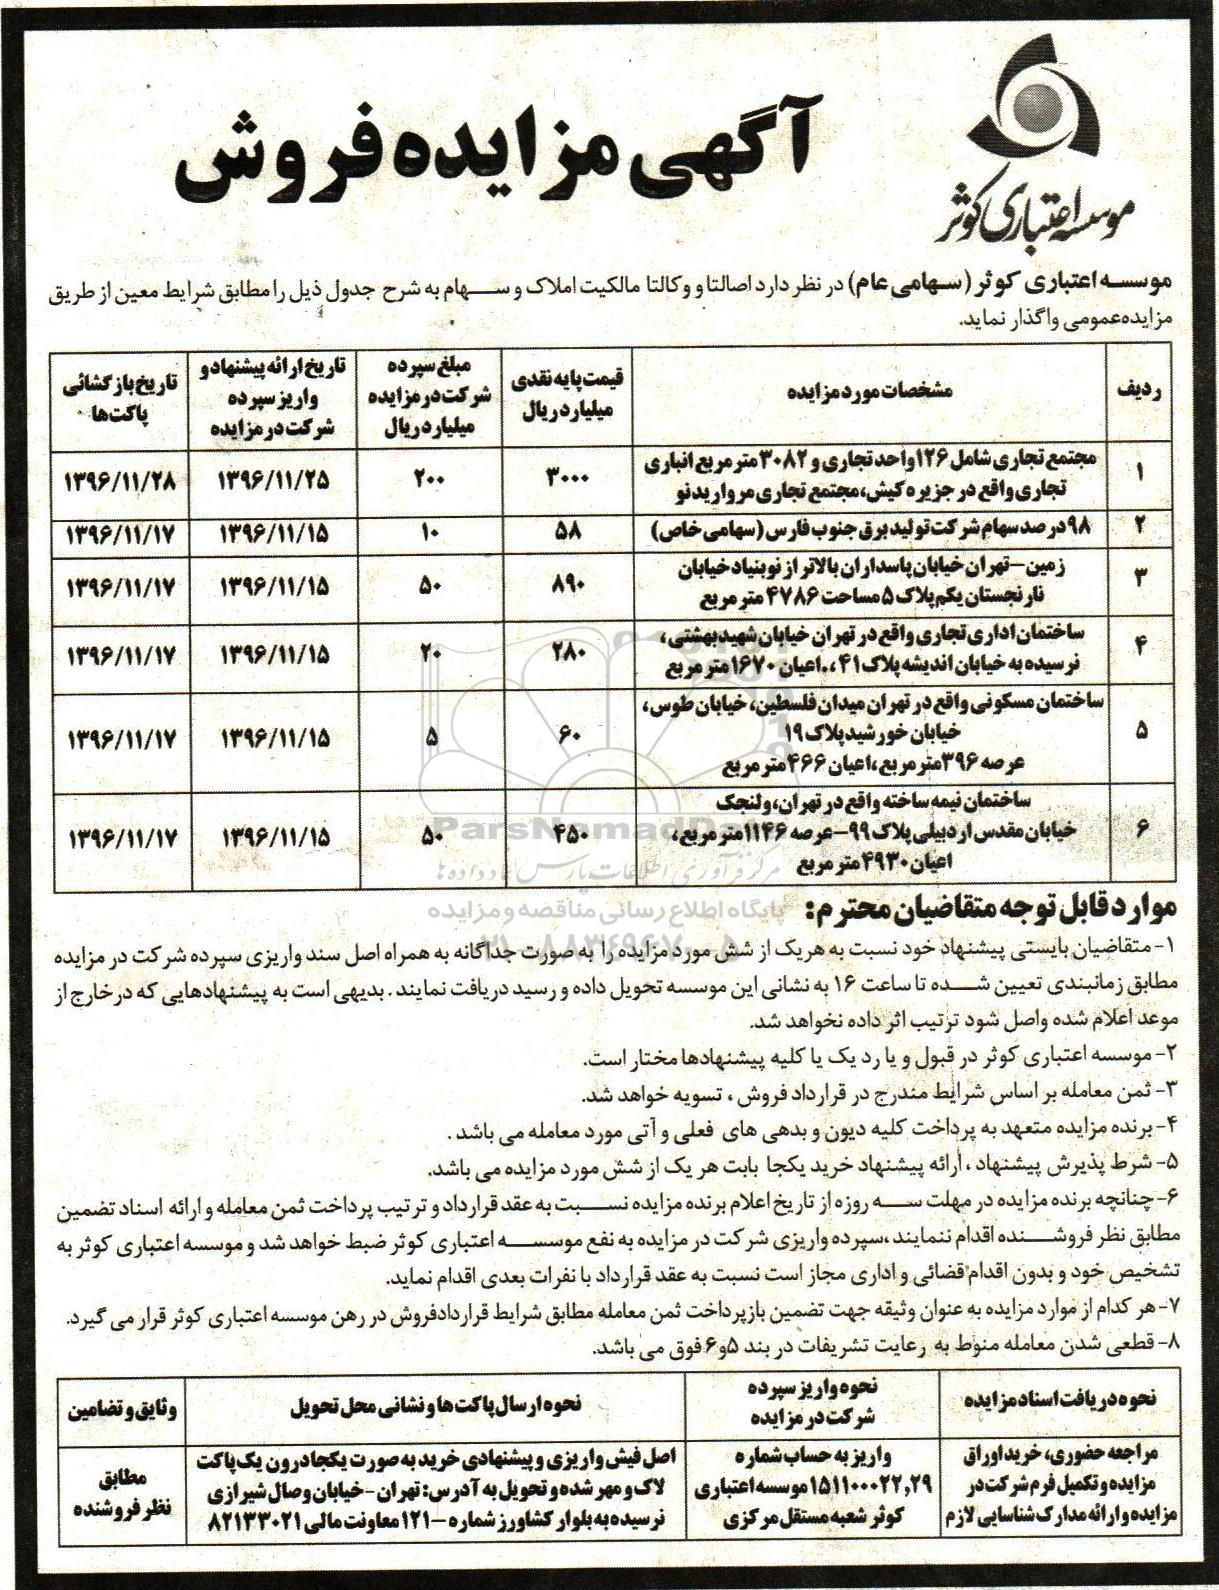 موسسه اعتباری کوثر
آگهی مزایده فروش
موسسه اعتباری کوثر (سهامی عام) در نظر دارد اصالتا و وکالتا مالکیت املاک و سهام به شرح جدول ذیل را مطابق شرایط معین از طریق
مزایده عمومی واگذار نماید.
ردیف | مشخصات مورد مزایده | قیمت پایه نقدی میلیارد ریال | مبلغ سپرده شرکت در مزایده میلیارد ریال | تاریخ ارائه پیشنهاد و واریز سپرده شرکت در مزایده | تاریخ بازگشائی پاکت‌ها
۱ | مجتمع تجاری شامل ۱۲۶ واحد تجاری و ۳۰۸۲ متر مربع انباری تجاری واقع در جزیره کیش، مجتمع تجاری مروارید نو | ۳۰۰۰ | ۲۰۰ | ۱۳۹۶/۱۱/۲۵ | ۱۳۹۶/۱۱/۲۸
۲ | ۹۸ درصد سهام شرکت تولید برق جنوب فارس (سهامی خاص) | ۵۸ | ۱۰ | ۱۳۹۶/۱۱/۱۵ | ۱۳۹۶/۱۱/۱۷
۳ | زمین-تهران خیابان پاسداران بالاتر از نوبنیاد خیابان نارنجستان یکم پلاک ۵ مساحت ۴۷۸۶ متر مربع | ۸۹۰ | ۵۰ | ۱۳۹۶/۱۱/۱۵ | ۱۳۹۶/۱۱/۱۷
۴ | ساختمان اداری تجاری واقع در تهران خیابان شهید بهشتی، نرسیده به خیابان اندیشه پلاک ۴۱،.اعیان ۱۶۷۰ متر مربع | ۲۸۰ | ۲۰ | ۱۳۹۶/۱۱/۱۵ | ۱۳۹۶/۱۱/۱۷
۵ | ساختمان مسکونی واقع در تهران میدان فلسطین، خیابان طوس، خیابان خورشید پلاک ۱۹ عرصه ۳۹۶ متر مربع، اعیان ۴۶۶ متر مربع | ۶۰ | ۵ | ۱۳۹۶/۱۱/۱۵ | ۱۳۹۶/۱۱/۱۷
۶ | ساختمان نیمه ساخته واقع در تهران، ولنجک خیابان مقدس اردبیلی پلاک ۹۹-عرصه ۱۱۴۶ متر مربع، اعیان ۴۹۳۰ متر مربع | ۴۵۰ | ۵۰ | ۱۳۹۶/۱۱/۱۵ | ۱۳۹۶/۱۱/۱۷
ParsNamadData
مرکز فرآوری اطلاعات پارس نماد داده ها
پایگاه اطلاع رسانی مناقصه و مزایده
موارد قابل توجه متقاضیان محترم:
۱-متقاضیان بایستی پیشنهاد خود نسبت به هریک از شش مورد مزایده را به صورت جداگانه به همراه اصل سند واریزی سپرده شرکت در مزایده
مطابق زمانبندی تعیین شده تا ساعت ۱۶ به نشانی این موسسه تحویل داده و رسید دریافت نمایند. بدیهی است به پیشنهادهایی که در خارج از
موعد اعلام شده واصل شود ترتیب اثر داده نخواهد شد.
۲-موسسه اعتباری کوثر در قبول و یا رد یک یا کلیه پیشنهادها مختار است.
۳- ثمن معامله بر اساس شرایط مندرج در قرارداد فروش، تسویه خواهد شد.
۴-برنده مزایده متعهد به پرداخت کلیه دیون و بدهی های فعلی و آتی مورد معامله می باشد.
۵- شرط پذیرش پیشنهاد، ارائه پیشنهاد خرید یکجا بابت هر یک از شش مورد مزایده می باشد.
۶-چنانچه برنده مزایده در مهلت سه روزه از تاریخ اعلام برنده مزایده نسبت به عقد قرارداد و ترتیب پرداخت ثمن معامله و ارائه اسناد تضمین
مطابق نظر فروشنده اقدام ننمایند، سپرده واریزی شرکت در مزایده به نفع موسسه اعتباری کوثر ضبط خواهد شد و موسسه اعتباری کوثر به
تشخیص خود و بدون اقدام قضائی و اداری مجاز است نسبت به عقد قرارداد با نفرات بعدی اقدام نماید.
۷-هر کدام از موارد مزایده به عنوان وثیقه جهت تضمین بازپرداخت ثمن معامله مطابق شرایط قرارداد فروش در رهن موسسه اعتباری کوثر قرار می گیرد.
۸- قطعی شدن معامله منوط به رعایت تشریفات در بند ۵و۶ فوق می باشد.
نحوه دریافت اسناد مزایده | نحوه واریز سپرده شرکت در مزایده | نحوه ارسال پاکت ها و نشانی محل تحویل | وثایق و تضامین
مراجعه حضوری، خرید اوراق مزایده و تکمیل فرم شرکت در مزایده و ارائه مدارک شناسایی لازم | واریز به حساب شماره ۱۵۱۱۰۰۰۰۲۲,۲۹ موسسه اعتباری کوثر شعبه مستقل مرکزی | اصل فیش واریزی و پیشنهادی خرید به صورت یکجا درون یک پاکت لاک و مهر شده و تحویل به آدرس: تهران - خیابان وصال شیرازی نرسیده به بلوار کشاورز شماره - ۱۲۱ معاونت مالی ۸۲۱۳۳۰۲۱ | مطابق نظر فروشنده